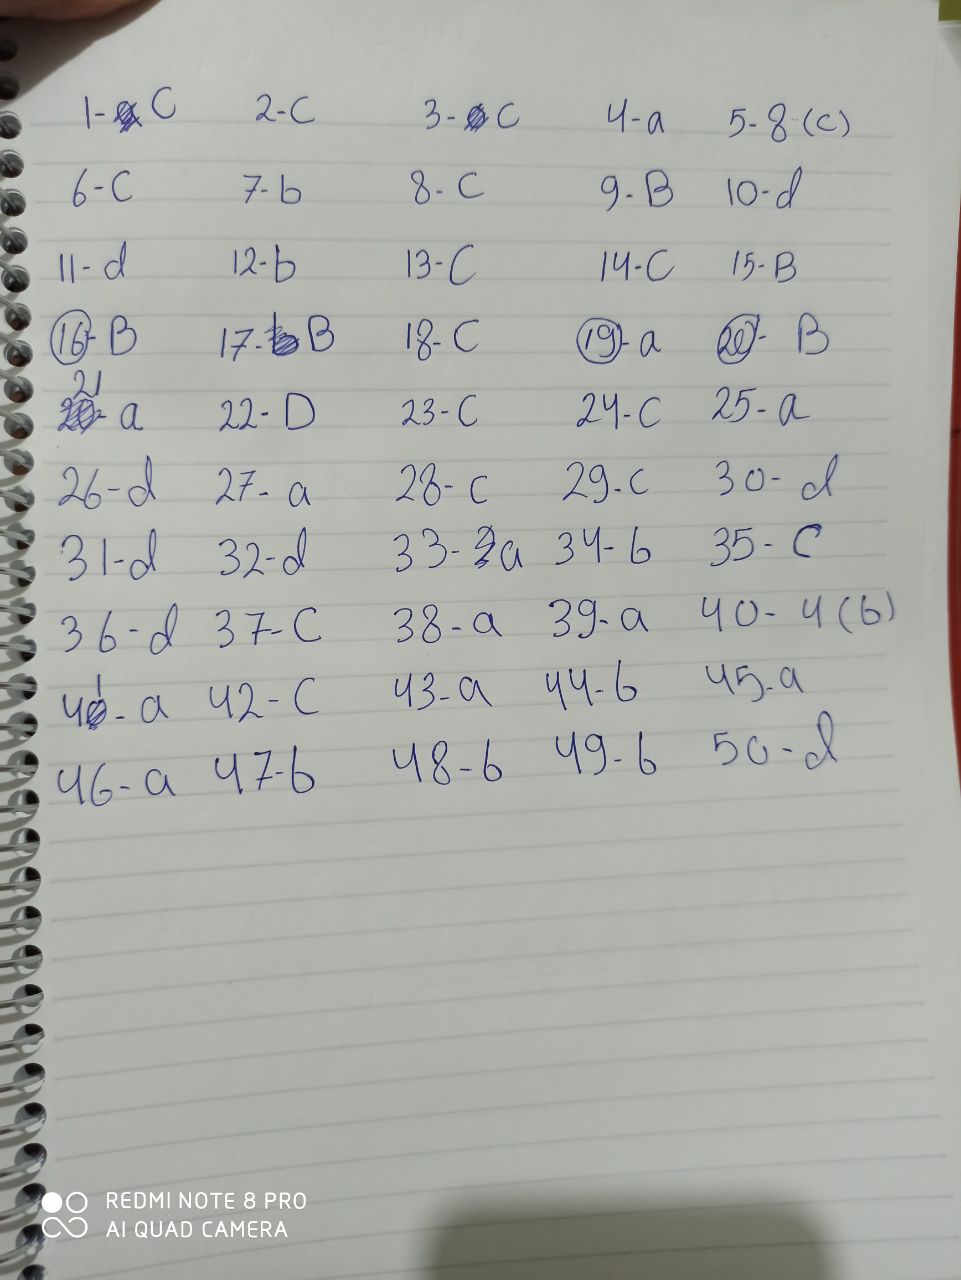 1- C 2-C 3- C 4-a 5-8 (c)
6-C 7-b 8-C 9-B 10-d
11-d 12-b 13-C 14-C 15-B
16-B 17- B 18-C 19-a 20- B
21 a 22-D 23-C 24-C 25-a
26-d 27-a 28-c 29-c 30-d
31-d 32-d 33- a 34-b 35-C
36-d 37-C 38-a 39-a 40-4(b)
41-a 42-C 43-a 44-b 45-a
46-a 47-b 48-b 49-b 50-d
REDMI NOTE 8 PRO
AI QUAD CAMERA